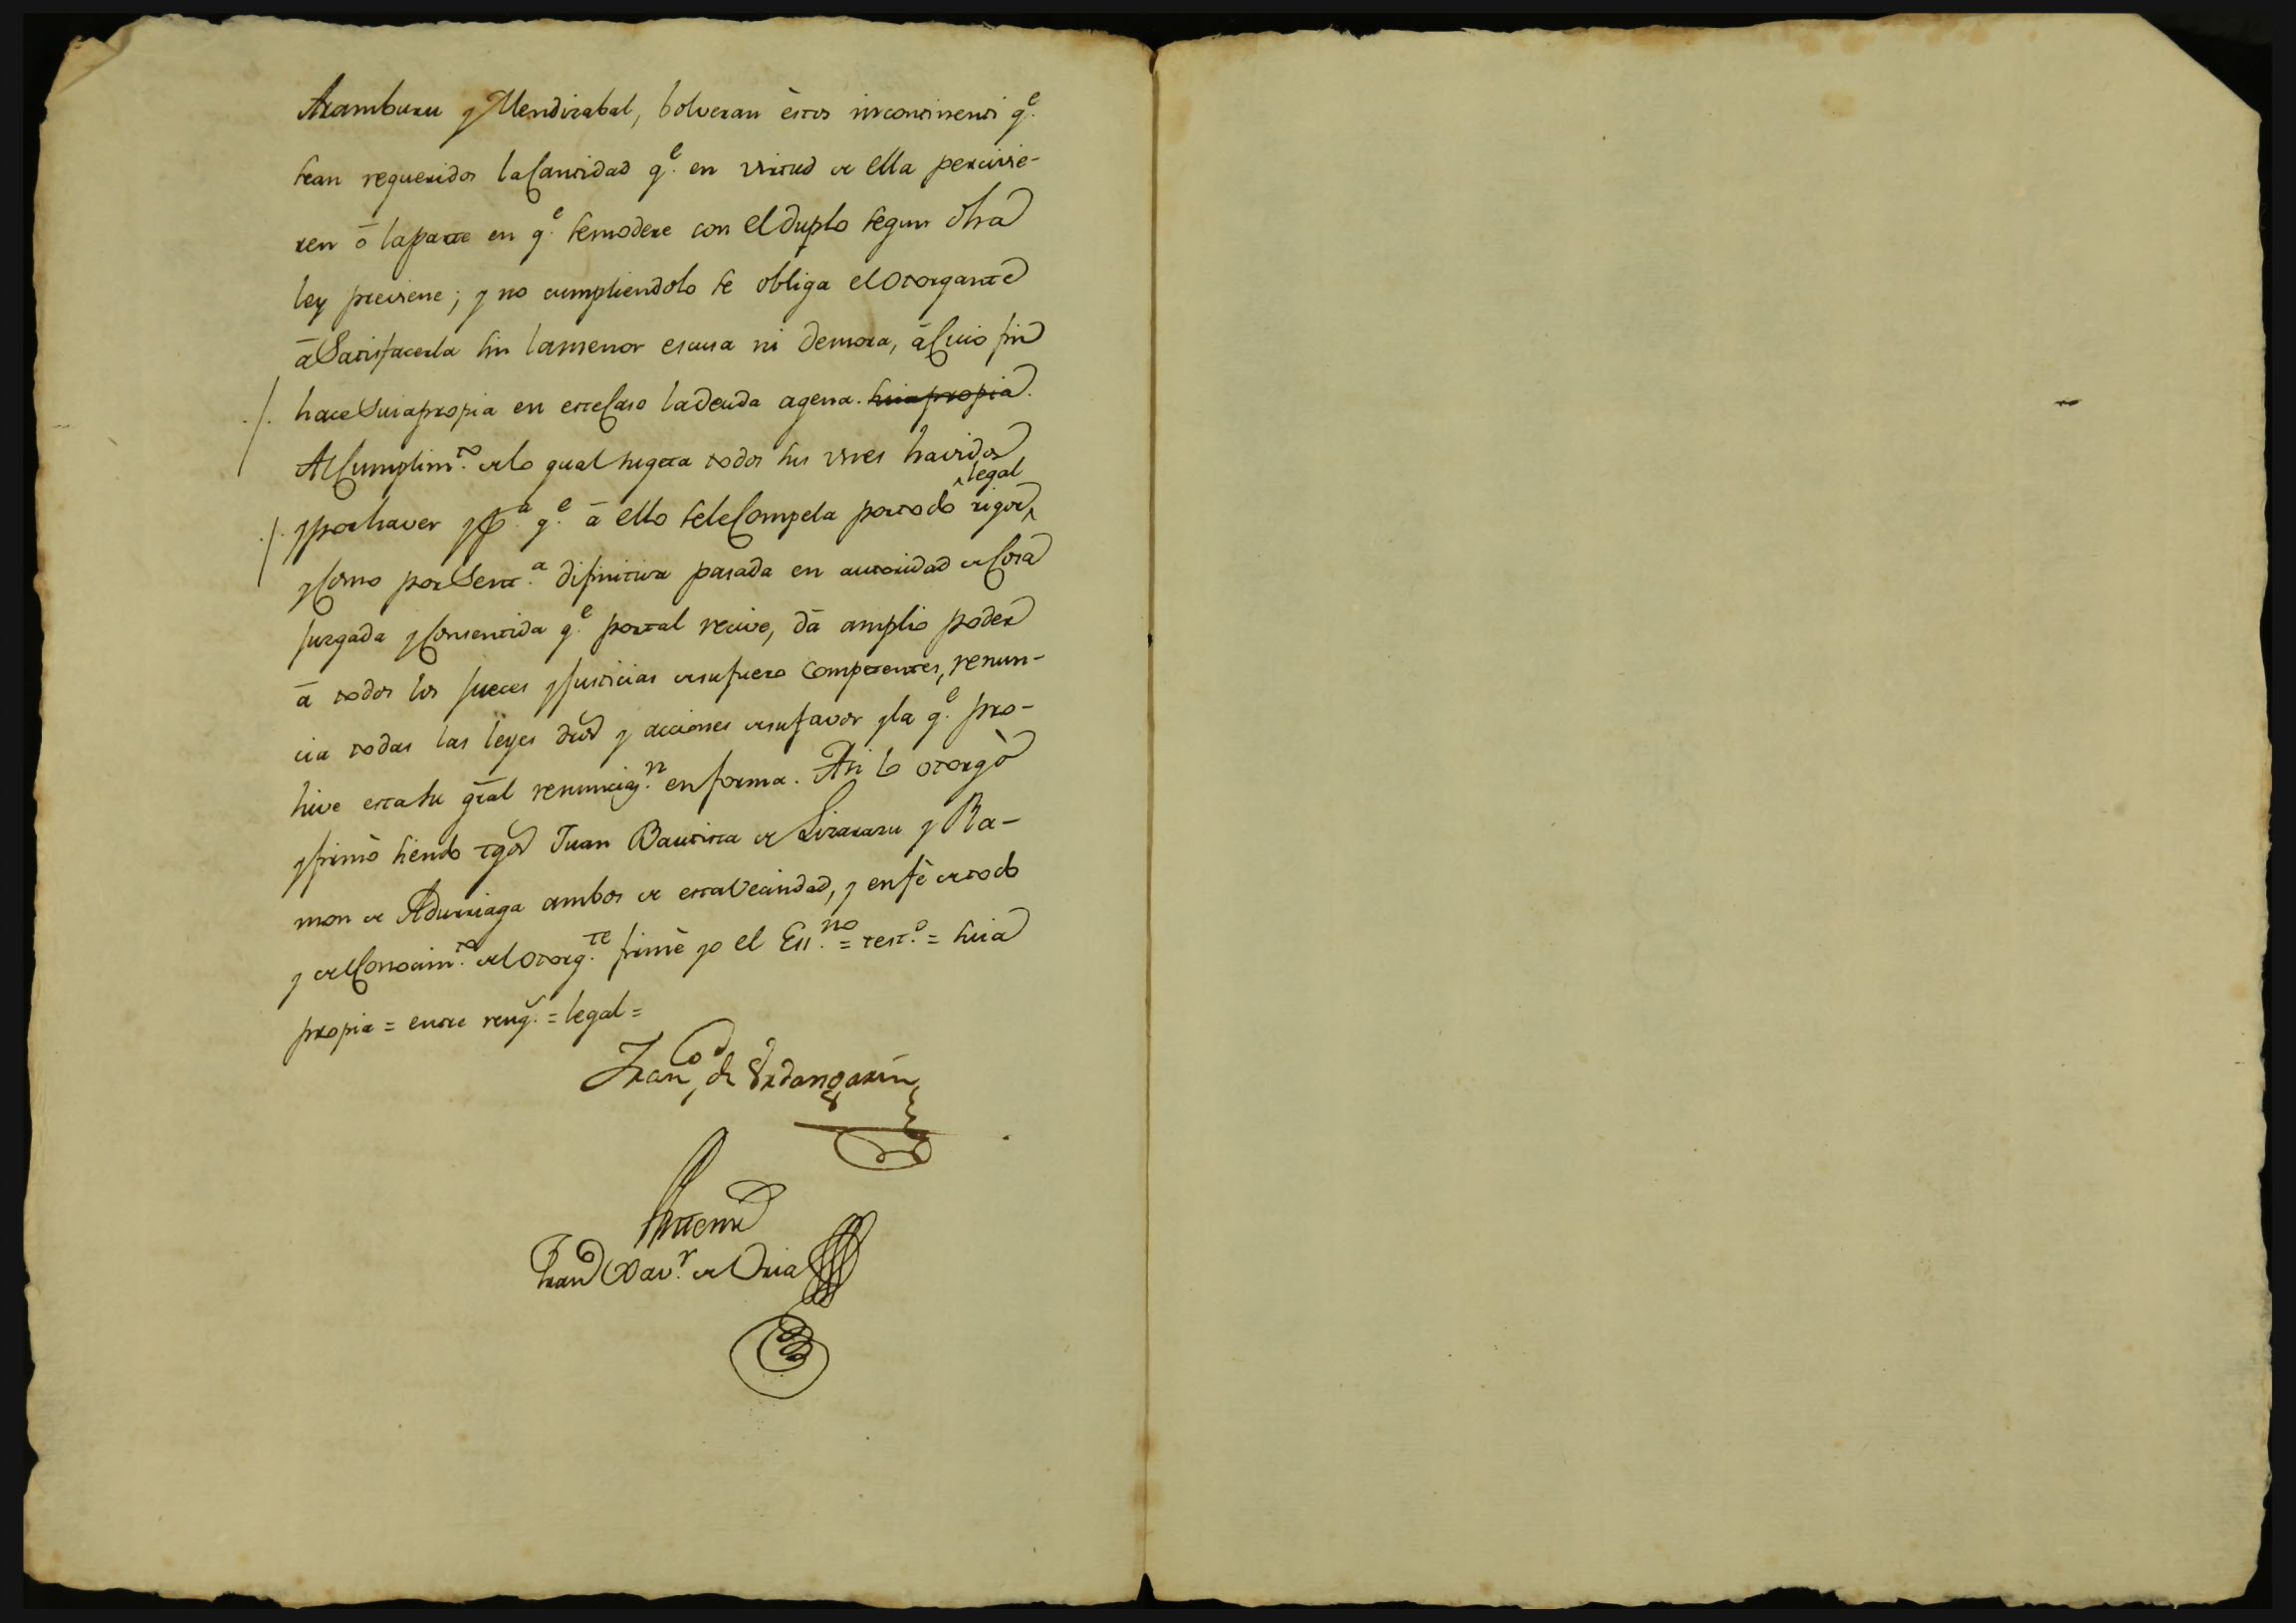 Aramburu y Mendizabal, bolveran èstos incontinenti q.e
sean requeridos la Cantidad q.e en virtud de ella percivie-
ren ô la parte en q.e se modere con el duplo segun otra
ley previene; y no cumpliendolo se obliga el Otorgante
â Satisfacerla sin la menor escusa ni demora, â Cuio fin
hace Suia propia en este Caso la deuda agena. suia propia.
Al Cumplim.to de lo qual sugeta todos sus vnes havidos
y por haver y p.a q.e â ello se le Compela por todo rigor ^legal^
y Como por Sent.a difinitiva pasada en autoridad de Cosa
Juzgada y Consentida q.e por tal recive, dâ amplio poder
â todos los Jueces y Justicias de su fuero Competentes, renun-
cia todas las leyes dros y acciones de su favor y la q.e pro-
hive esta su gral renunciaz.n en forma. Asi lo otorgò
y firmò siendo tgos Juan Bautista de Lizarazu y Ra-
mon de Adurriaga ambos de esta Vecindad, y en fè de todo
y del Conocim.to del Otorg.te firmè yo el Ess.no = test.o = suia
propia = entre reng.s = legal =
Fran.co de Urdangarin
Ante mi
Fran.co Xav.r de Oria